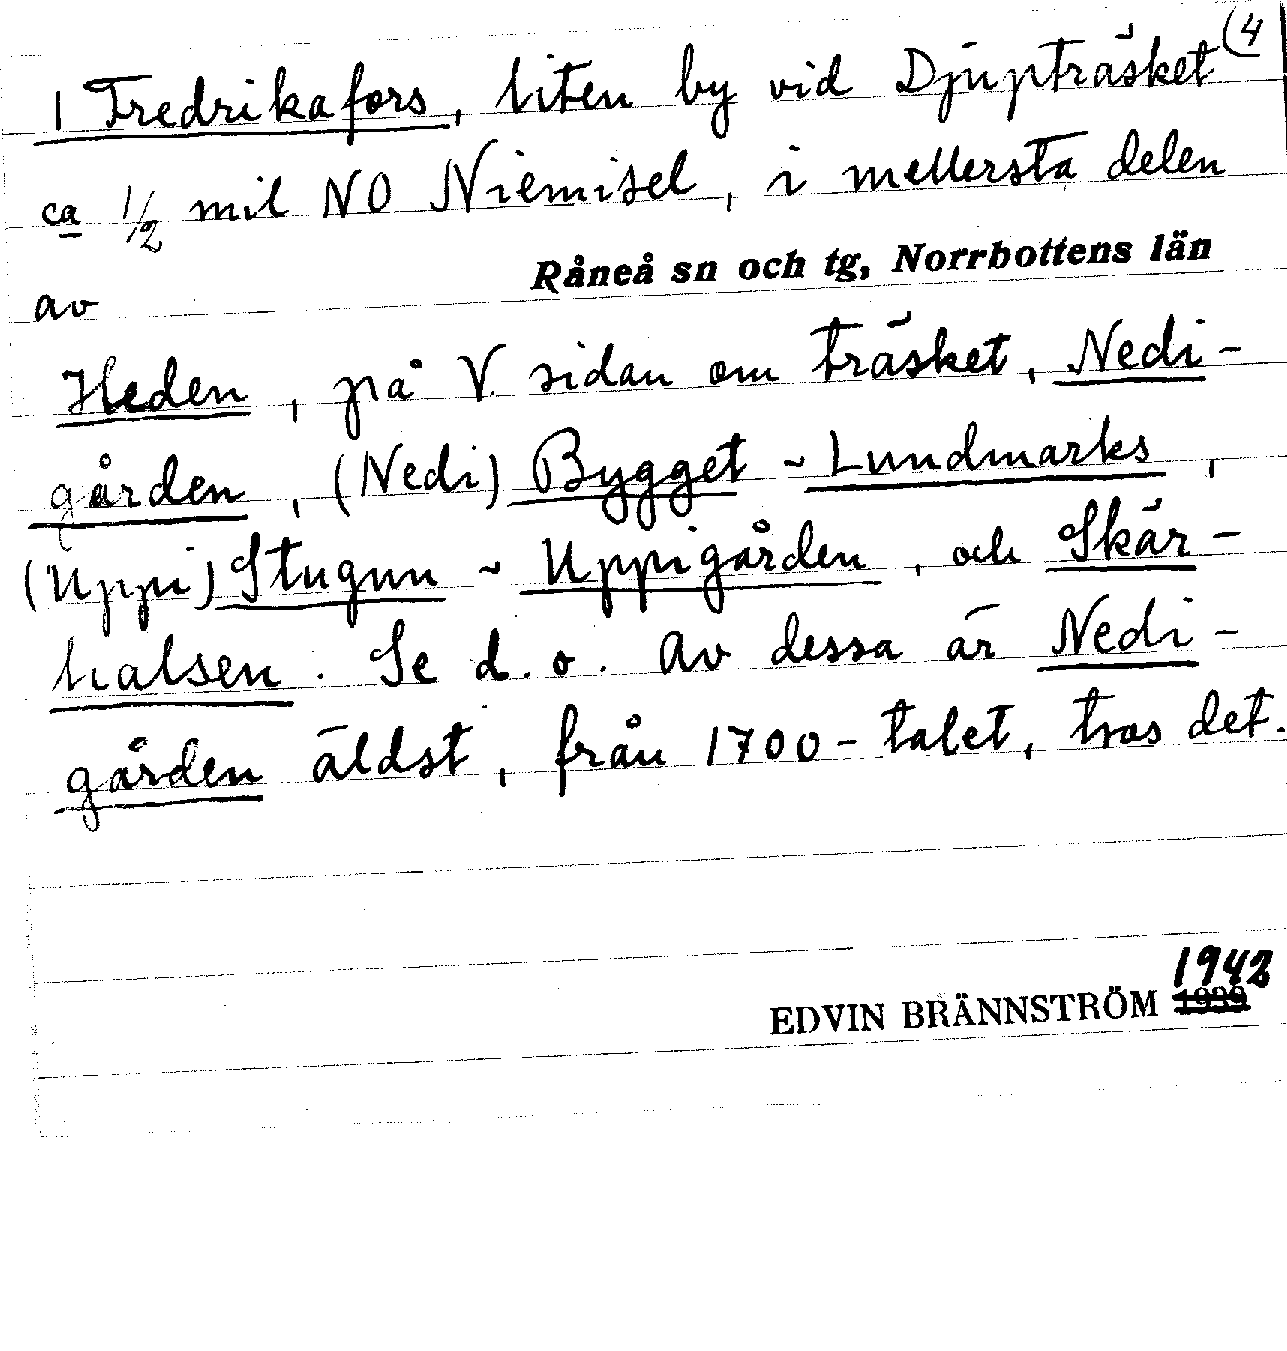 (4
1 Fredrikafors, liten by vid Djupträsket
ca 1/2 mil NO Niemisel, i mellersta delen
av Råneå sn och tg, Norrbottens län
Heden, på V. sidan om träsket, Nedi-
gården, (Nedi) Bygget ~ Lundmarks,
(Uppi) Stugun ~ Uppigården, och Skär-
halsen. Se d. o. Av dessa är Nedi-
gården äldst, från 1700-talet, tros det.
1942
EDVIN BRÄNNSTRÖM 1939